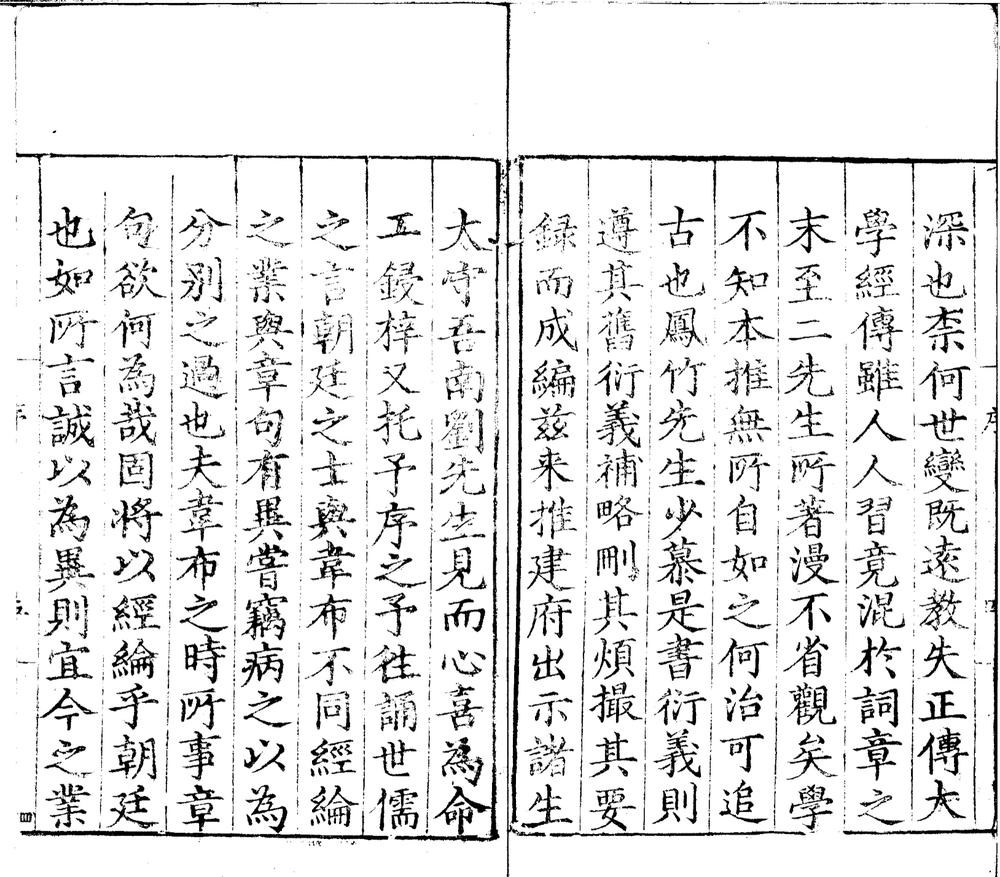 深也柰何世變既遠教失正傳大
學經傳雖人人習竟混於詞章之
末至二先生所著漫不省觀矣學
不知本推無所自如之何治可追
古也鳳竹先生少慕是書衍義則
遵其舊衍義補略刪其煩撮其要
録而成編茲来推建府出示諸生
太守吾南劉先生見而心喜為命
工鋟梓又托予序之予徃誦世儒
之言朝廷之士與韋布不同經綸
之業與章句有異嘗竊病之以為
分别之過也夫韋布之時所事章
句欲何為哉固將以經綸乎朝廷
也如所言誠以為異則宜今之業
序
四